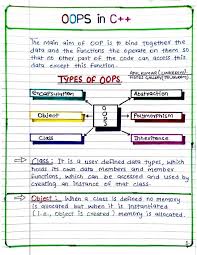 OOPS in C++
The main aim of OOP is to bind together the
data and the functions the operate on them so
that no other part of the code can access this
data except this function.
TYPES OF OOPS.
Encapsulation
Abstraction
Object
Polymorphism
Class
Inheritence
Class: It is a user defined data types, which
holds its own data members and member
functions, which can be accessed and used by
creating an instance of that class.
Object: When a class is defined no memory
is allocated but when it is instantiated
(i.e., object is created) memory is allocated.